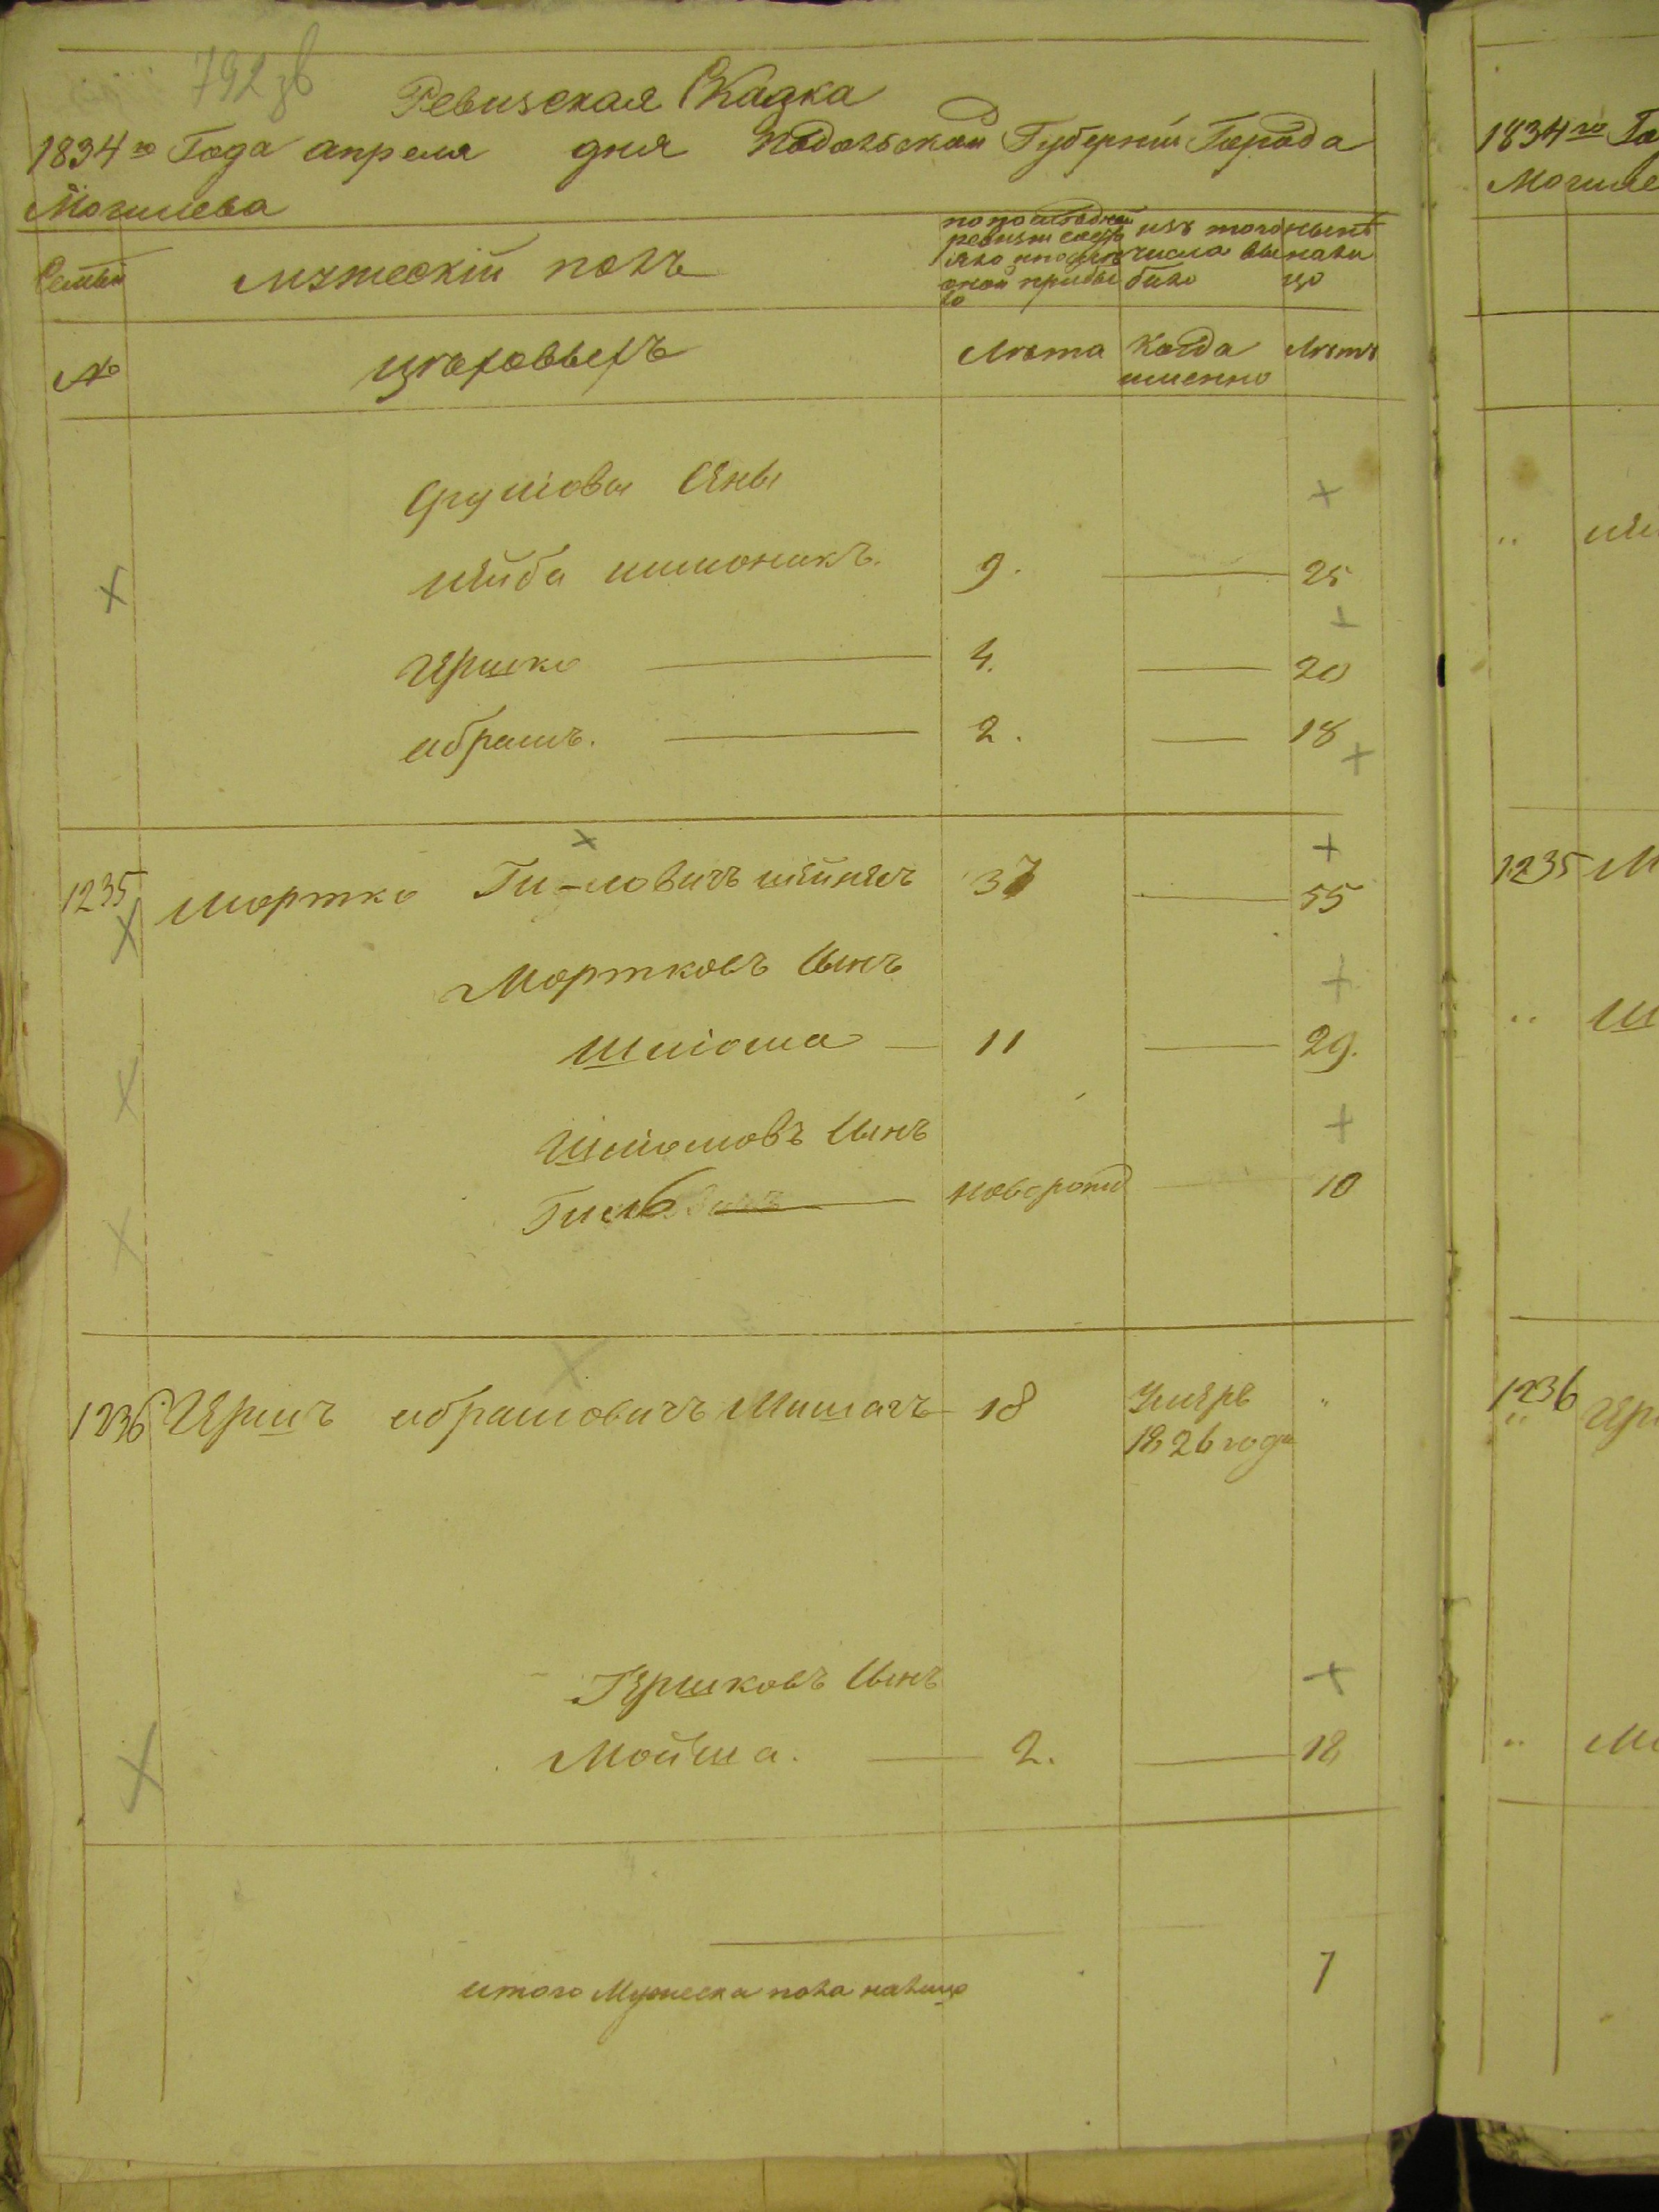 792 зв
Ревизская Сказка
1834го Года апреля дня Подольской Губернии Города
Могилева
Семьи
Мужескій полъ
по последней ревизіи состояло и после оной прибыло
изъ того числа выбыло
ныне налицо
№
цеховыхъ
Лета
Когда именно
Летъ
Сруліовы Сыны
Лейба шмоникъ. 9. 25
Гершко 4. 20
абрамъ. 2. 18
1235 Мортко Ги-ловичъ 37 55
Мортковъ Сынъ
Шліома 11 29.
Шліомовъ Сынъ
новорожд 10
1236 Гершъ абрамовичъ 18 Умере
1826 года
Гершковъ Сынъ
Мойша. 2. 18
итого Мужеска пола налицо 7
1834го
1235 М
Ш
1236